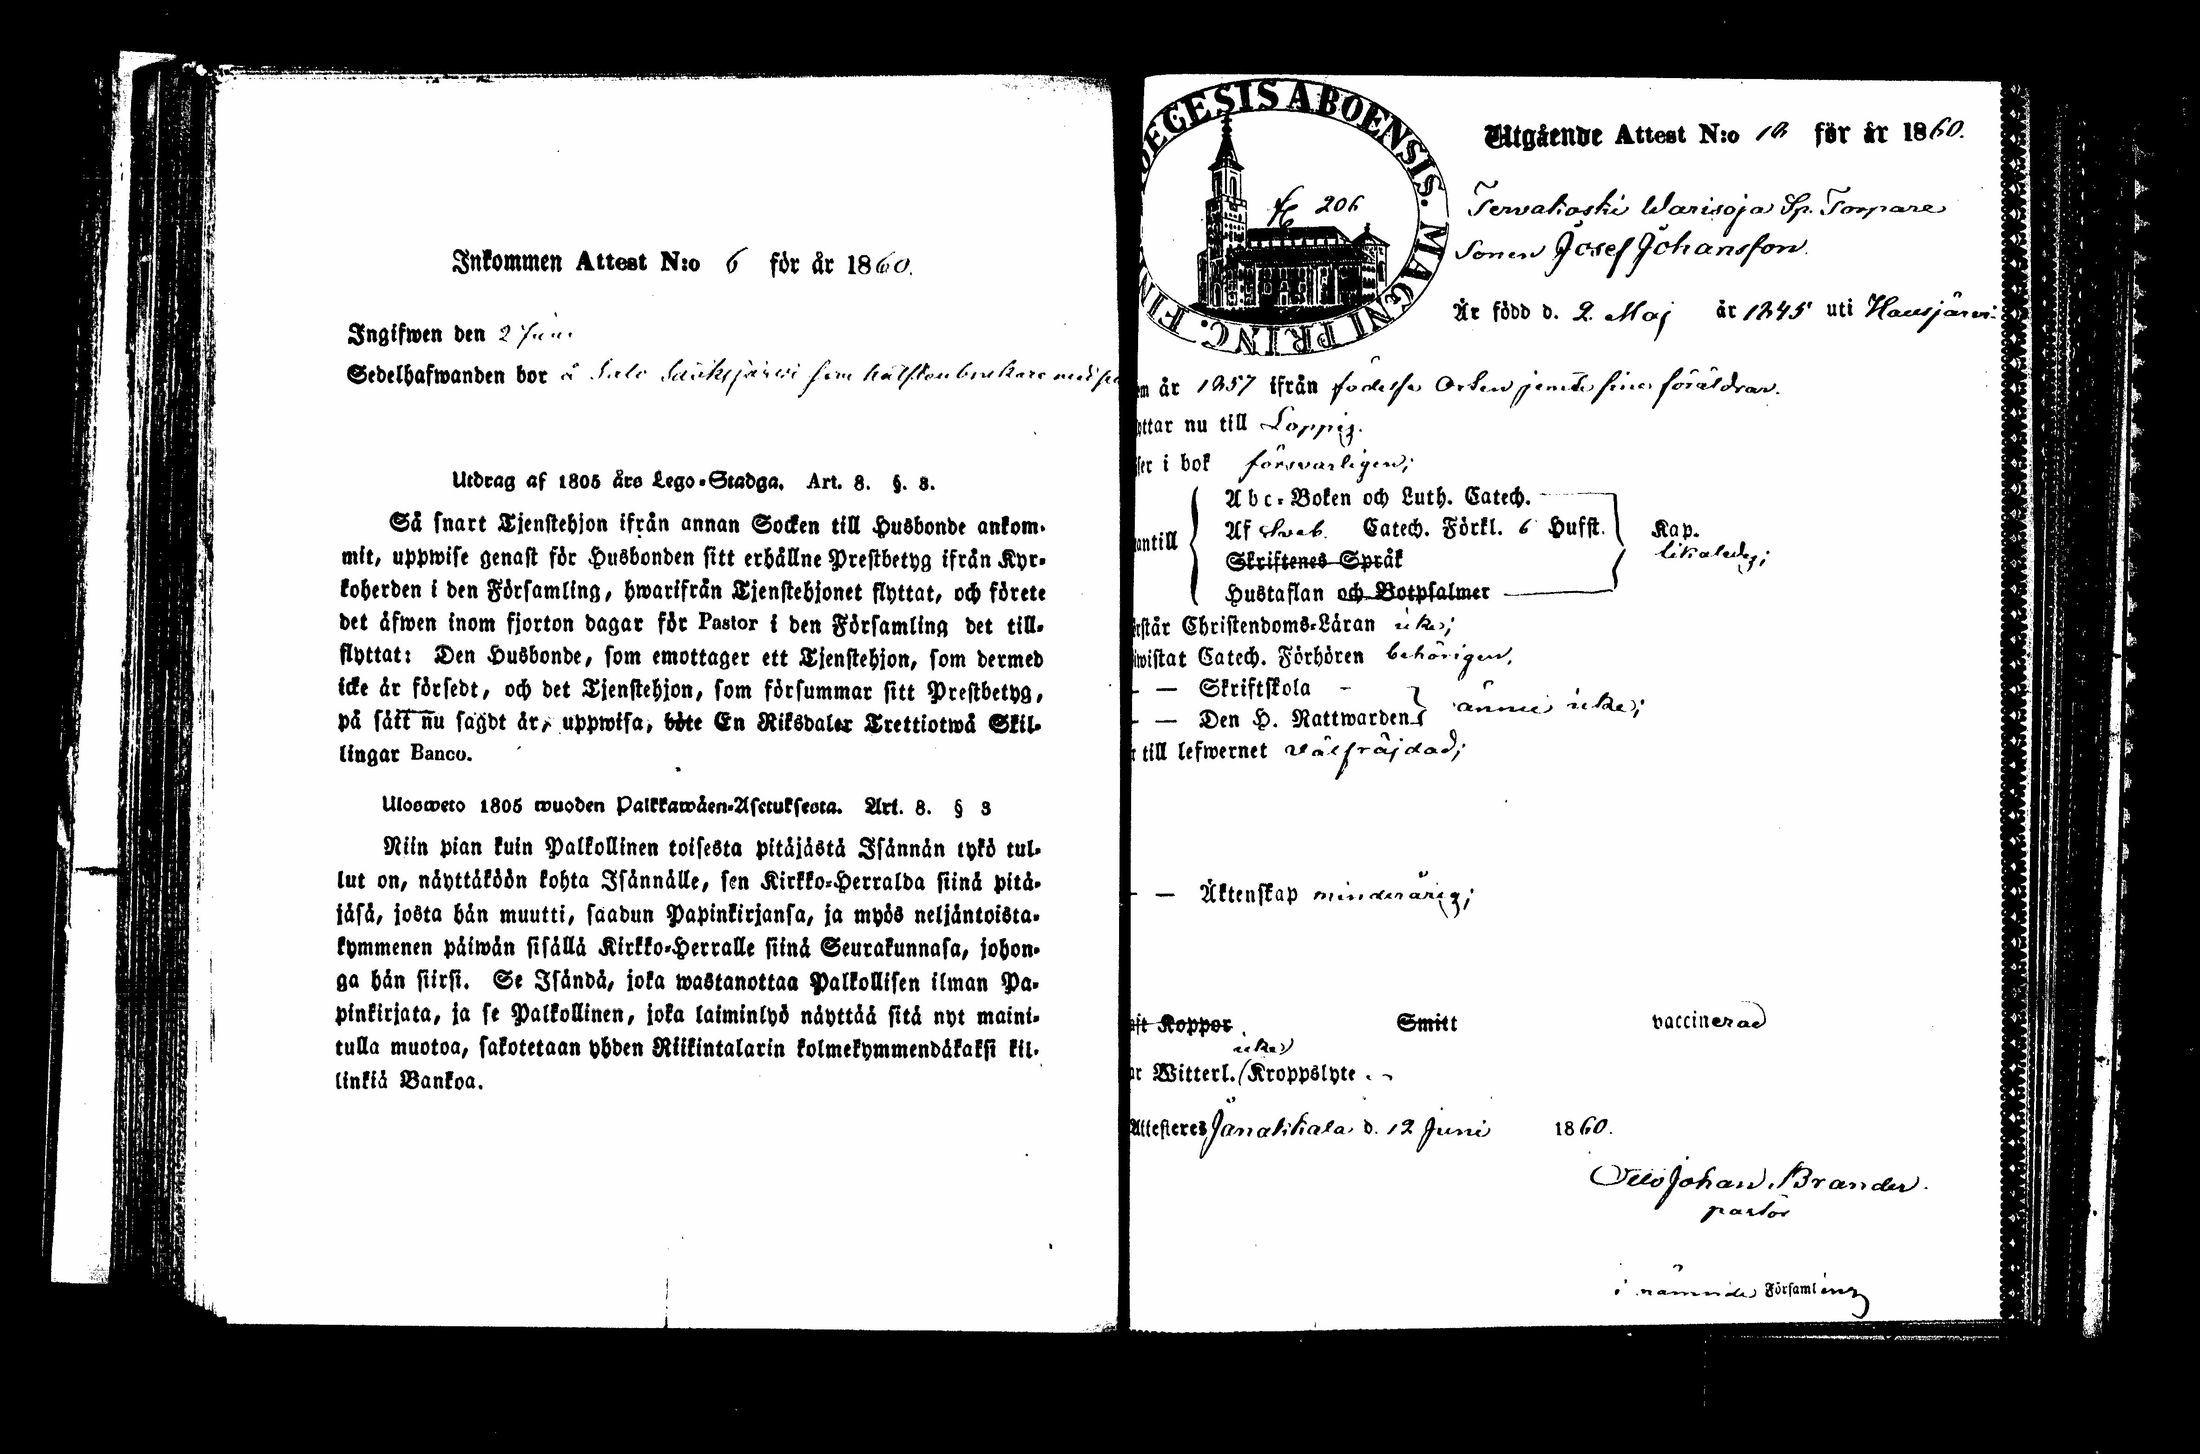 Inkommen Attest N:o 6 för år 1860.
Ingifwen den 2 Juni
Sedelhafwanden bor å Salo Sääksjärvi som hälftenbrukare med
Utdrag af 1805 års Lego-Stadga. Art. 8. §. 3.
Så snart Tjenstehjon ifrån annan Socken till Husbonde ankom-
mit, uppwise genast för Husbonden sitt erhållne Prestbetyg ifrån Kyr-
koherden i den Församling, hwarifrån Tjenstehjonet flyttat, och förete
det äfwen inom fjorton dagar för Pastor i den Församling det till-
flyttat: Den Husbonde, som emottager ett Tjenstehjon, som dermed
icke är försedt, och det Tjenstehjon, som försummar sitt Prestbetyg,
på sätt nu sagdt är, uppwisa, böte En Riksdaler Trettiotwå Skil-
lingar Banco.
Ulosweto 1805 wuoden Palkkawäen-Asetuksesta. Art. 8. § 3
Niin pian kuin Palkollinen toisesta pitäjästä Isännän tykö tul-
lut on, näyttäköön kohta Isännälle, sen Kirkko-Herralda siinä pitä-
jäsä, josta hän muutti, saadun Papinkirjansa, ja myös neljäntoista-
kymmenen päiwän sisällä Kirkko-Herralle siinä Seurakunnasa, johon-
ga hän siirsi. Se Isändä, joka wastanottaa Palkollisen ilman Pa-
pinkirjata, ja se Palkollinen, joka laiminlyö näyttää sitä nyt maini-
tulla muotoa, sakotetaan yhden Riikintalarin kolmekymmendäkaksi kil-
linkiä Bankoa.
DECESIS ABOENSIS. MAGNI PRINC. FIN
206
Utgående Attest N:o 12 för år 1860.
Tervakoski Warisoja Sp. Torpare
Sonen Josef Johansson.
Är född d. 2 Maj år 1845 uti Hausjärvi.
om år 1857 ifrån födelse Orten jemte sine föräldrar.
yttar nu till Loppis.
ser i bok försvarligen;
antill
Abc-Boken och Luth. Catech.
Af Sveb. Catech. Förkl. 6 Hufst.
Skriftenes Språk
Hustaflan och Botpsalmer
Kap.
likaledes;
rstår Christendoms-Läran icke;
iwistat Catech. Förhören behörigen,
— — Skriftskola -
— — Den H. Nattwarden
ännu icke;
r till lefwernet välfräjdad;
— — Äktenskap minderårig;
aft Koppor Smitt vaccinerad
icke
ar Witterl. Kroppslyte . -
Attesteres Janakkala d. 12 Juni 1860.
Otto Johan Brander.
pastor
i nämnde Församling